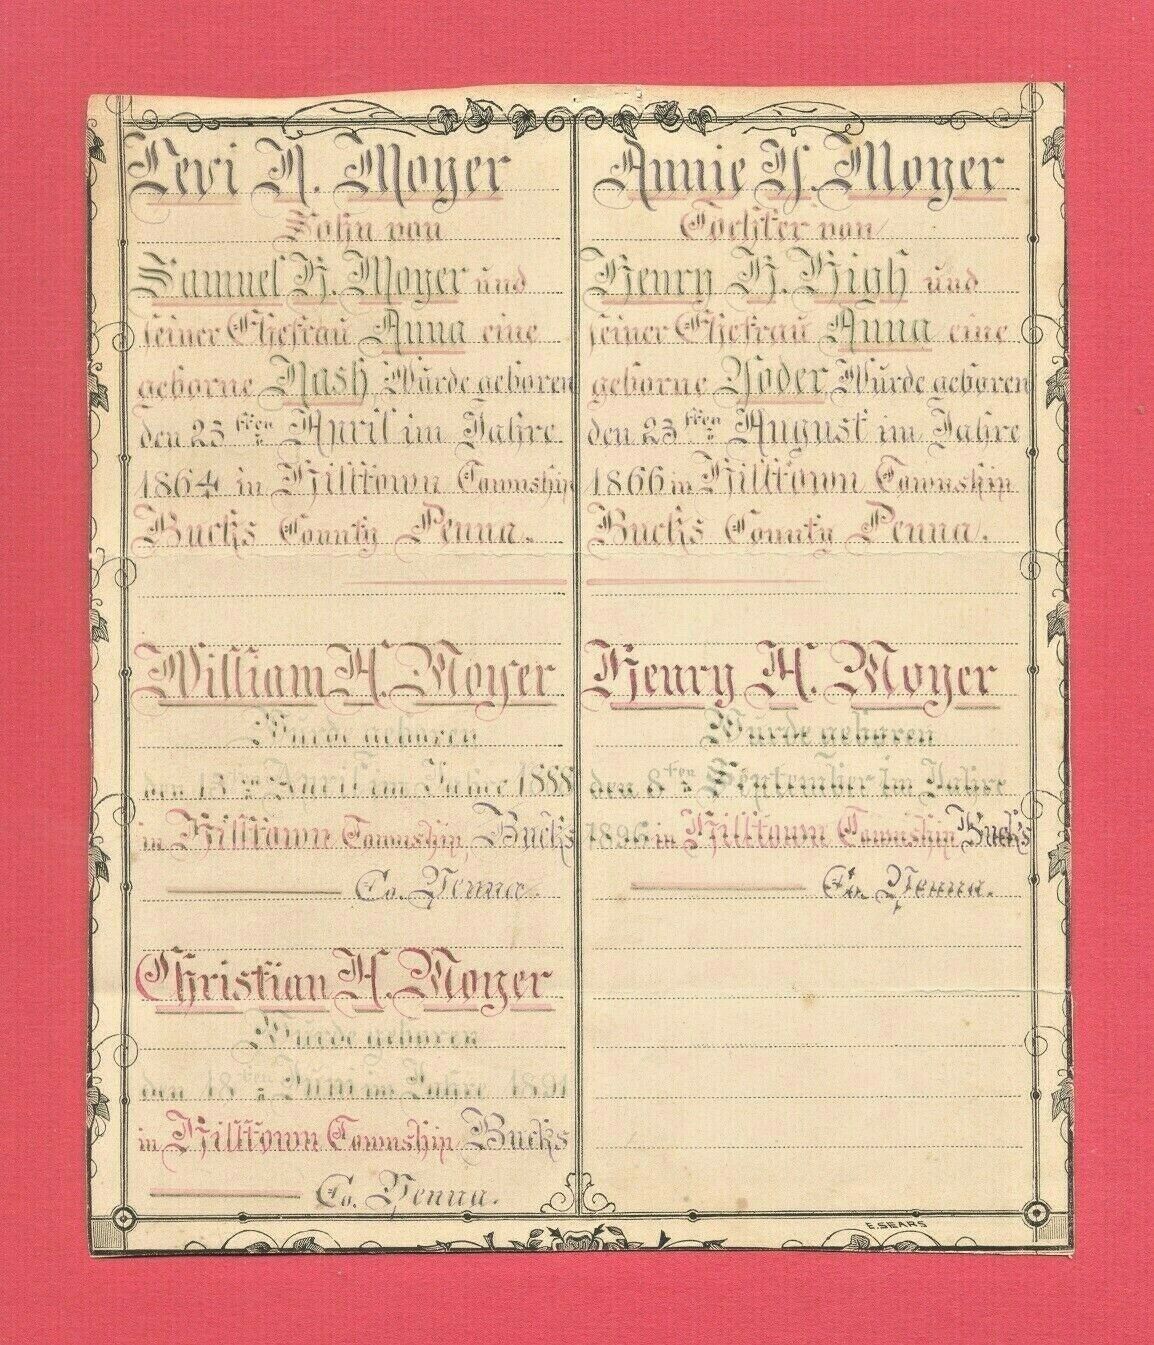 Levi N. Moyer
Sohn von
Samuel H. Moyer und
seiner Ehefrau Anna eine
geborne Nash, Wurde geboren
den 25ten April im Jahre
1864 in Hilltown Township
Bucks County Penna.
William H. Moyer
Wurde geboren
den 15ten April im Jahre 1888
in Hilltown Township, Bucks
Co. Penna.
Christian H. Moyer
Wurde geboren
den 18ten Juni im Jahre 1891
in Hilltown Township, Bucks
Co. Penna.
Annie Y. Moyer
Tochter von
Henry H. High und
seiner Ehefrau Anna eine
geborne Yoder Wurde geboren
den 23ten August im Jahre
1866 in Hilltown Township
Bucks County Penna.
Henry H. Moyer
Wurde geboren
den 8ten September im Jahre
1896 in Hilltown Township Bucks
Co. Penna.
E. SEARS